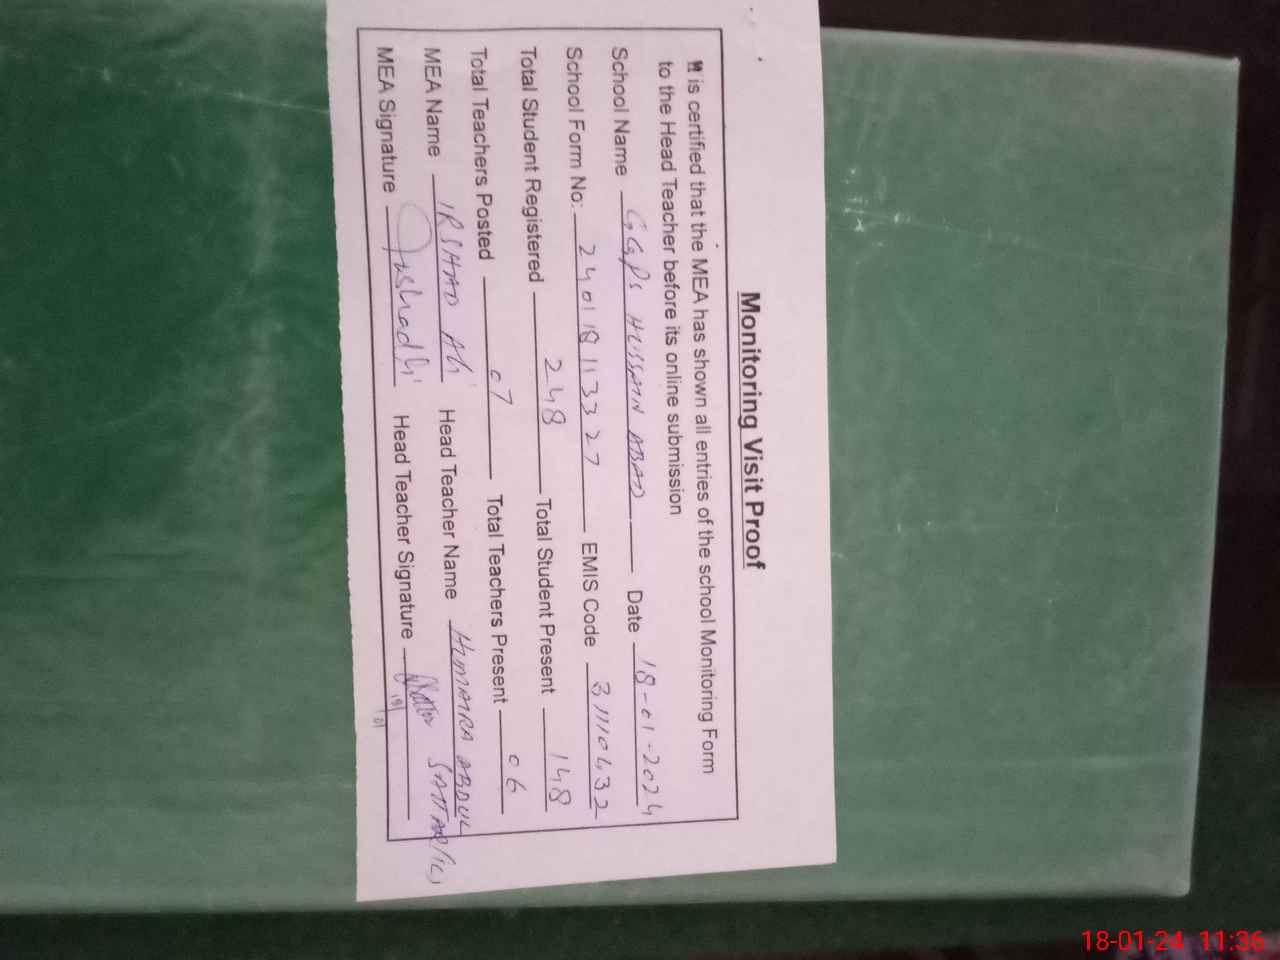 Monitoring Visit Proof
It is certified that the MEA has shown all entries of the school Monitoring Form
to the Head Teacher before its online submission
School Name GGPS HUSSAIN ABAD Date 18-01-2024
School Form No: 240118113327 EMIS Code 31110432
Total Student Registered 248 Total Student Present 148
Total Teachers Posted 07 Total Teachers Present 06
MEA Name IRSHAD Ali Head Teacher Name HUMAIRA ABDUL
SATTAR
MEA Signature Irshad Ali Head Teacher Signature
18-01-24 11:36